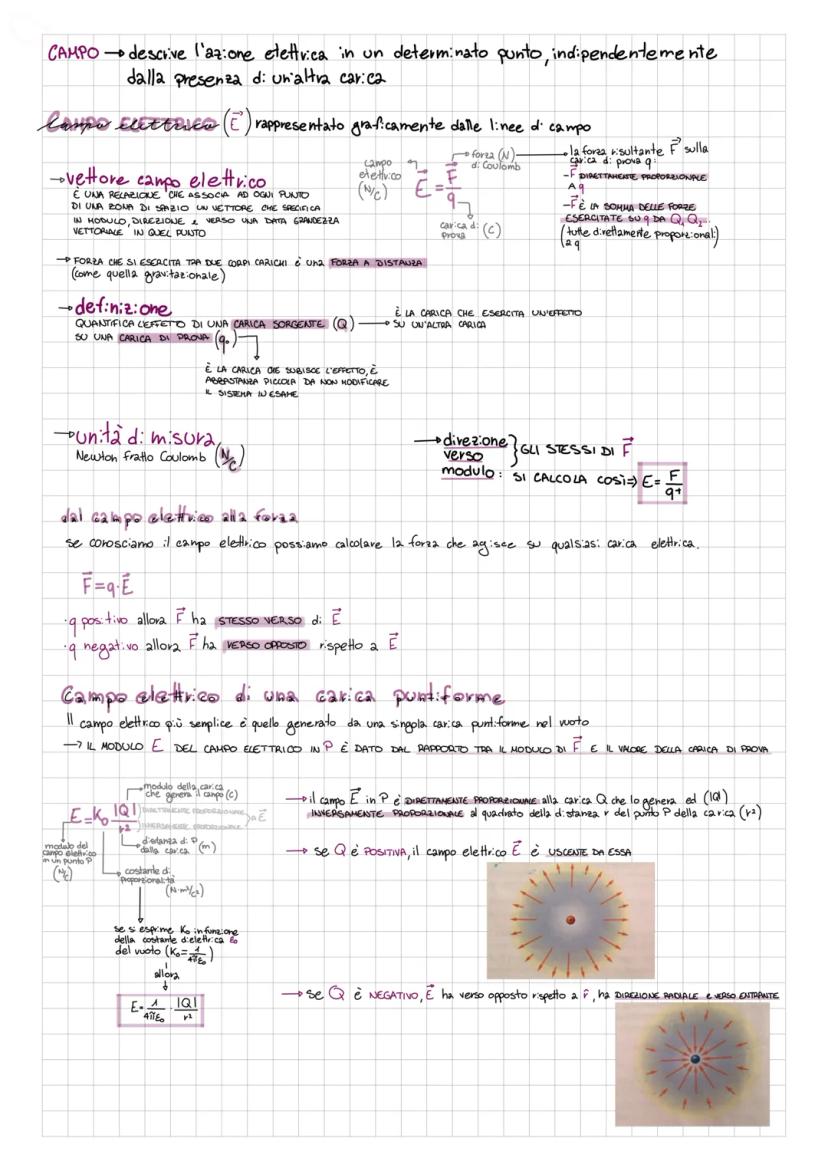 CAMPO → descrive l'azione elettrica in un determinato punto, indipendentemente
dalla presenza di un'altra carica
Campo elettrico (E⃗) rappresentato graficamente dalle linee di campo
→ vettore campo elettrico
È UNA RELAZIONE CHE ASSOCIA AD OGNI PUNTO
DI UNA ZONA DI SPAZIO UN VETTORE CHE SPECIFICA
IN MODULO, DIREZIONE e VERSO UNA DATA GRANDEZZA
VETTORIALE, IN QUEL PUNTO
campo
elettrico
(N/C)
E⃗ = F⃗/q
forza (N)
di Coulomb
carica di
prova (C)
la forza risultante F⃗ sulla
carica di prova q:
-F⃗ DIRETTAMENTE PROPORZIONALE
A q
-F⃗ È LA SOMMA DELLE FORZE
ESERCITATE SU q DA Q₁ Q₂...
(tutte direttamente proporzionali
a q)
→ FORZA CHE SI ESERCITA TRA DUE CORPI CARICHI è UNA FORZA A DISTANZA
(come quella gravitazionale)
→ definizione
QUANTIFICA L'EFFETTO DI UNA CARICA SORGENTE (Q) →
È LA CARICA CHE ESERCITA UN'EFFETTO
SU UN'ALTRA CARICA
SU UNA CARICA DI PROVA (q₀)
È LA CARICA CHE SUBISCE L'EFFETTO, È
ABBASTANZA PICCOLA DA NON MODIFICARE
IL SISTEMA IN ESAME
→ unità di misura
Newton fratto Coulomb (N/C)
→ direzione
verso
} GLI STESSI DI F⃗
modulo: SI CALCOLA COSÌ ⇒ E = F/q+
dal campo elettrico alla forza
se conosciamo il campo elettrico possiamo calcolare la forza che agisce su qualsiasi carica elettrica.
F⃗=q·E⃗
·q positivo allora F⃗ ha STESSO VERSO di E⃗
·q negativo allora F⃗ ha VERSO OPPOSTO rispetto a E⃗
Campo elettrico di una carica puntiforme
Il campo elettrico più semplice è quello generato da una singola carica puntiforme nel vuoto
→ IL MODULO E DEL CAMPO ELETTRICO IN P È DATO DAL RAPPORTO TRA IL MODULO DI F⃗ E IL VALORE DELLA CARICA DI PROVA
modulo della carica
che genera il campo (C)
E=K₀ |Q|/r²
DIRETTAMENTE PROPORZIONALE
INVERSAMENTE PROPORZIONALE
a E⃗
distanza di P
dalla carica (m)
modulo del
campo elettrico
in un punto P
(N/C)
costante di
proporzionalità
(N·m²/C²)
se si esprime K₀ in funzione
della costante dielettrica ε₀
del vuoto (K₀=1/4πε₀)
allora
E= 1/4πε₀ · |Q|/r²
→ il campo E⃗ in P è DIRETTAMENTE PROPORZIONALE alla carica Q che lo genera ed (|Q|)
INVERSAMENTE PROPORZIONALE al quadrato della distanza r del punto P della carica (r²)
→ se Q è POSITIVA, il campo elettrico E⃗ è USCENTE DA ESSA
→ se Q è NEGATIVO, E⃗ ha verso opposto rispetto a r̂, ha DIREZIONE RADIALE e VERSO ENTRANTE